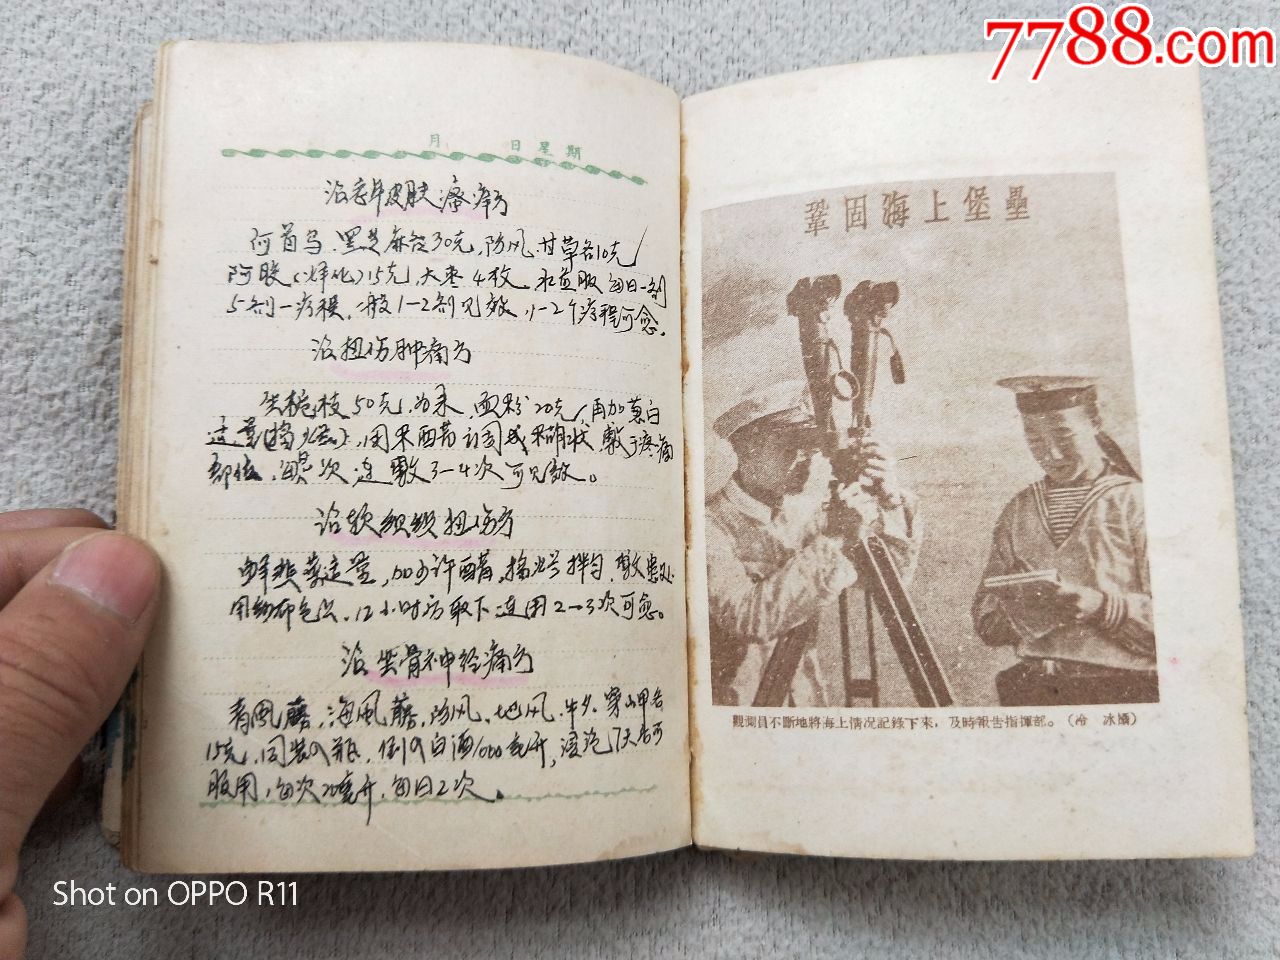 7788.com
月 日 星 期
治老年皮肤瘙痒方
何首乌、黑芝麻各30克,防风、甘草各10克
阿胶(烊化)15克,大枣4枚,水煎服每日一剂
5剂一疗程,一般1-2剂见效,1-2个疗程可愈。
治扭伤肿痛方
生栀枝50克,为末,面粉20克,再加葱白
适量(捣烂),用米醋调成米糊状,敷于疼痛
部位,每日1次连敷3-4次可见效。
治软组织扭伤方
鲜韭菜适量,加少许醋,捣烂拌匀,敷患处
用纱布包上,12小时后取下连用2-3次可愈。
治坐骨神经痛方
青风藤、海风藤、防风、地风、牛夕、穿山甲各
15克,同装入瓶,倒入白酒1000毫升,浸泡7天后可
服用,每次20毫升,每日2次。
鞏固海上堡壘
觀測員不斷地將海上情况記錄下來,及時報告指揮部。(冷 冰攝)
Shot on OPPO R11